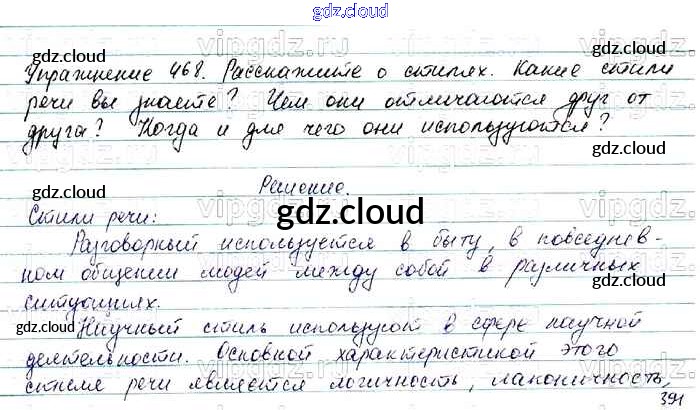 gdz.cloud
Упражнение 468. Расскажите о стилях. Какие стили
речи вы знаете? Чем они отличаются друг от
друга? Когда и для чего они используются?
gdz.cloud
Решение.
Стили речи:
gdz.cloud
Разговорный используется в быту, в повседнев-
ном общении людей между собой в различных
ситуациях.
Научный стиль используют в сфере научной
деятельности. Основной характеристикой этого
стиле речи является логичность, лаконичность,
391